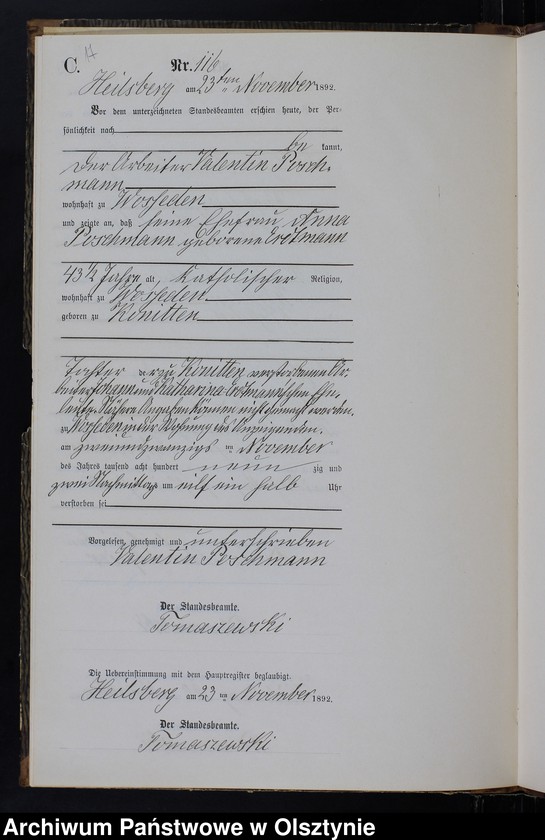 C. 17
Nr. 116
Heilsberg am 23ten November 1892.
Vor dem unterzeichneten Standesbeamten erschien heute, der Per-
sönlichkeit nach
be kannt,
der Arbeiter Valentin Posch-
mann
wohnhaft zu Wosseden
und zeigte an, daß seine Ehefrau Anna
Poschmann geborene Erdtmann
43 1/2 Jahre alt, Katholischer Religion,
wohnhaft zu Wosseden
geboren zu Konitten
Tochter der zu Konitten verstorbenen Ar-
beiter Johann und Katharina Erdtmann'schen Ehe-
leute. Nähere Angaben können nicht gemacht werden.
zu Wosseden in der Wohnung des Anzeigenden.
am zweiundzwanzigs ten November
des Jahres tausend acht hundert neun zig und
zwei Nachmittags um eilf ein halb Uhr
verstorben sei
Vorgelesen, genehmigt und unterschrieben
Valentin Poschmann
Der Standesbeamte.
Tomaszewski
Die Uebereinstimmung mit dem Hauptregister beglaubigt.
Heilsberg am 23 ten November 1892.
Der Standesbeamte.
Tomaszewski
Archiwum Państwowe w Olsztynie